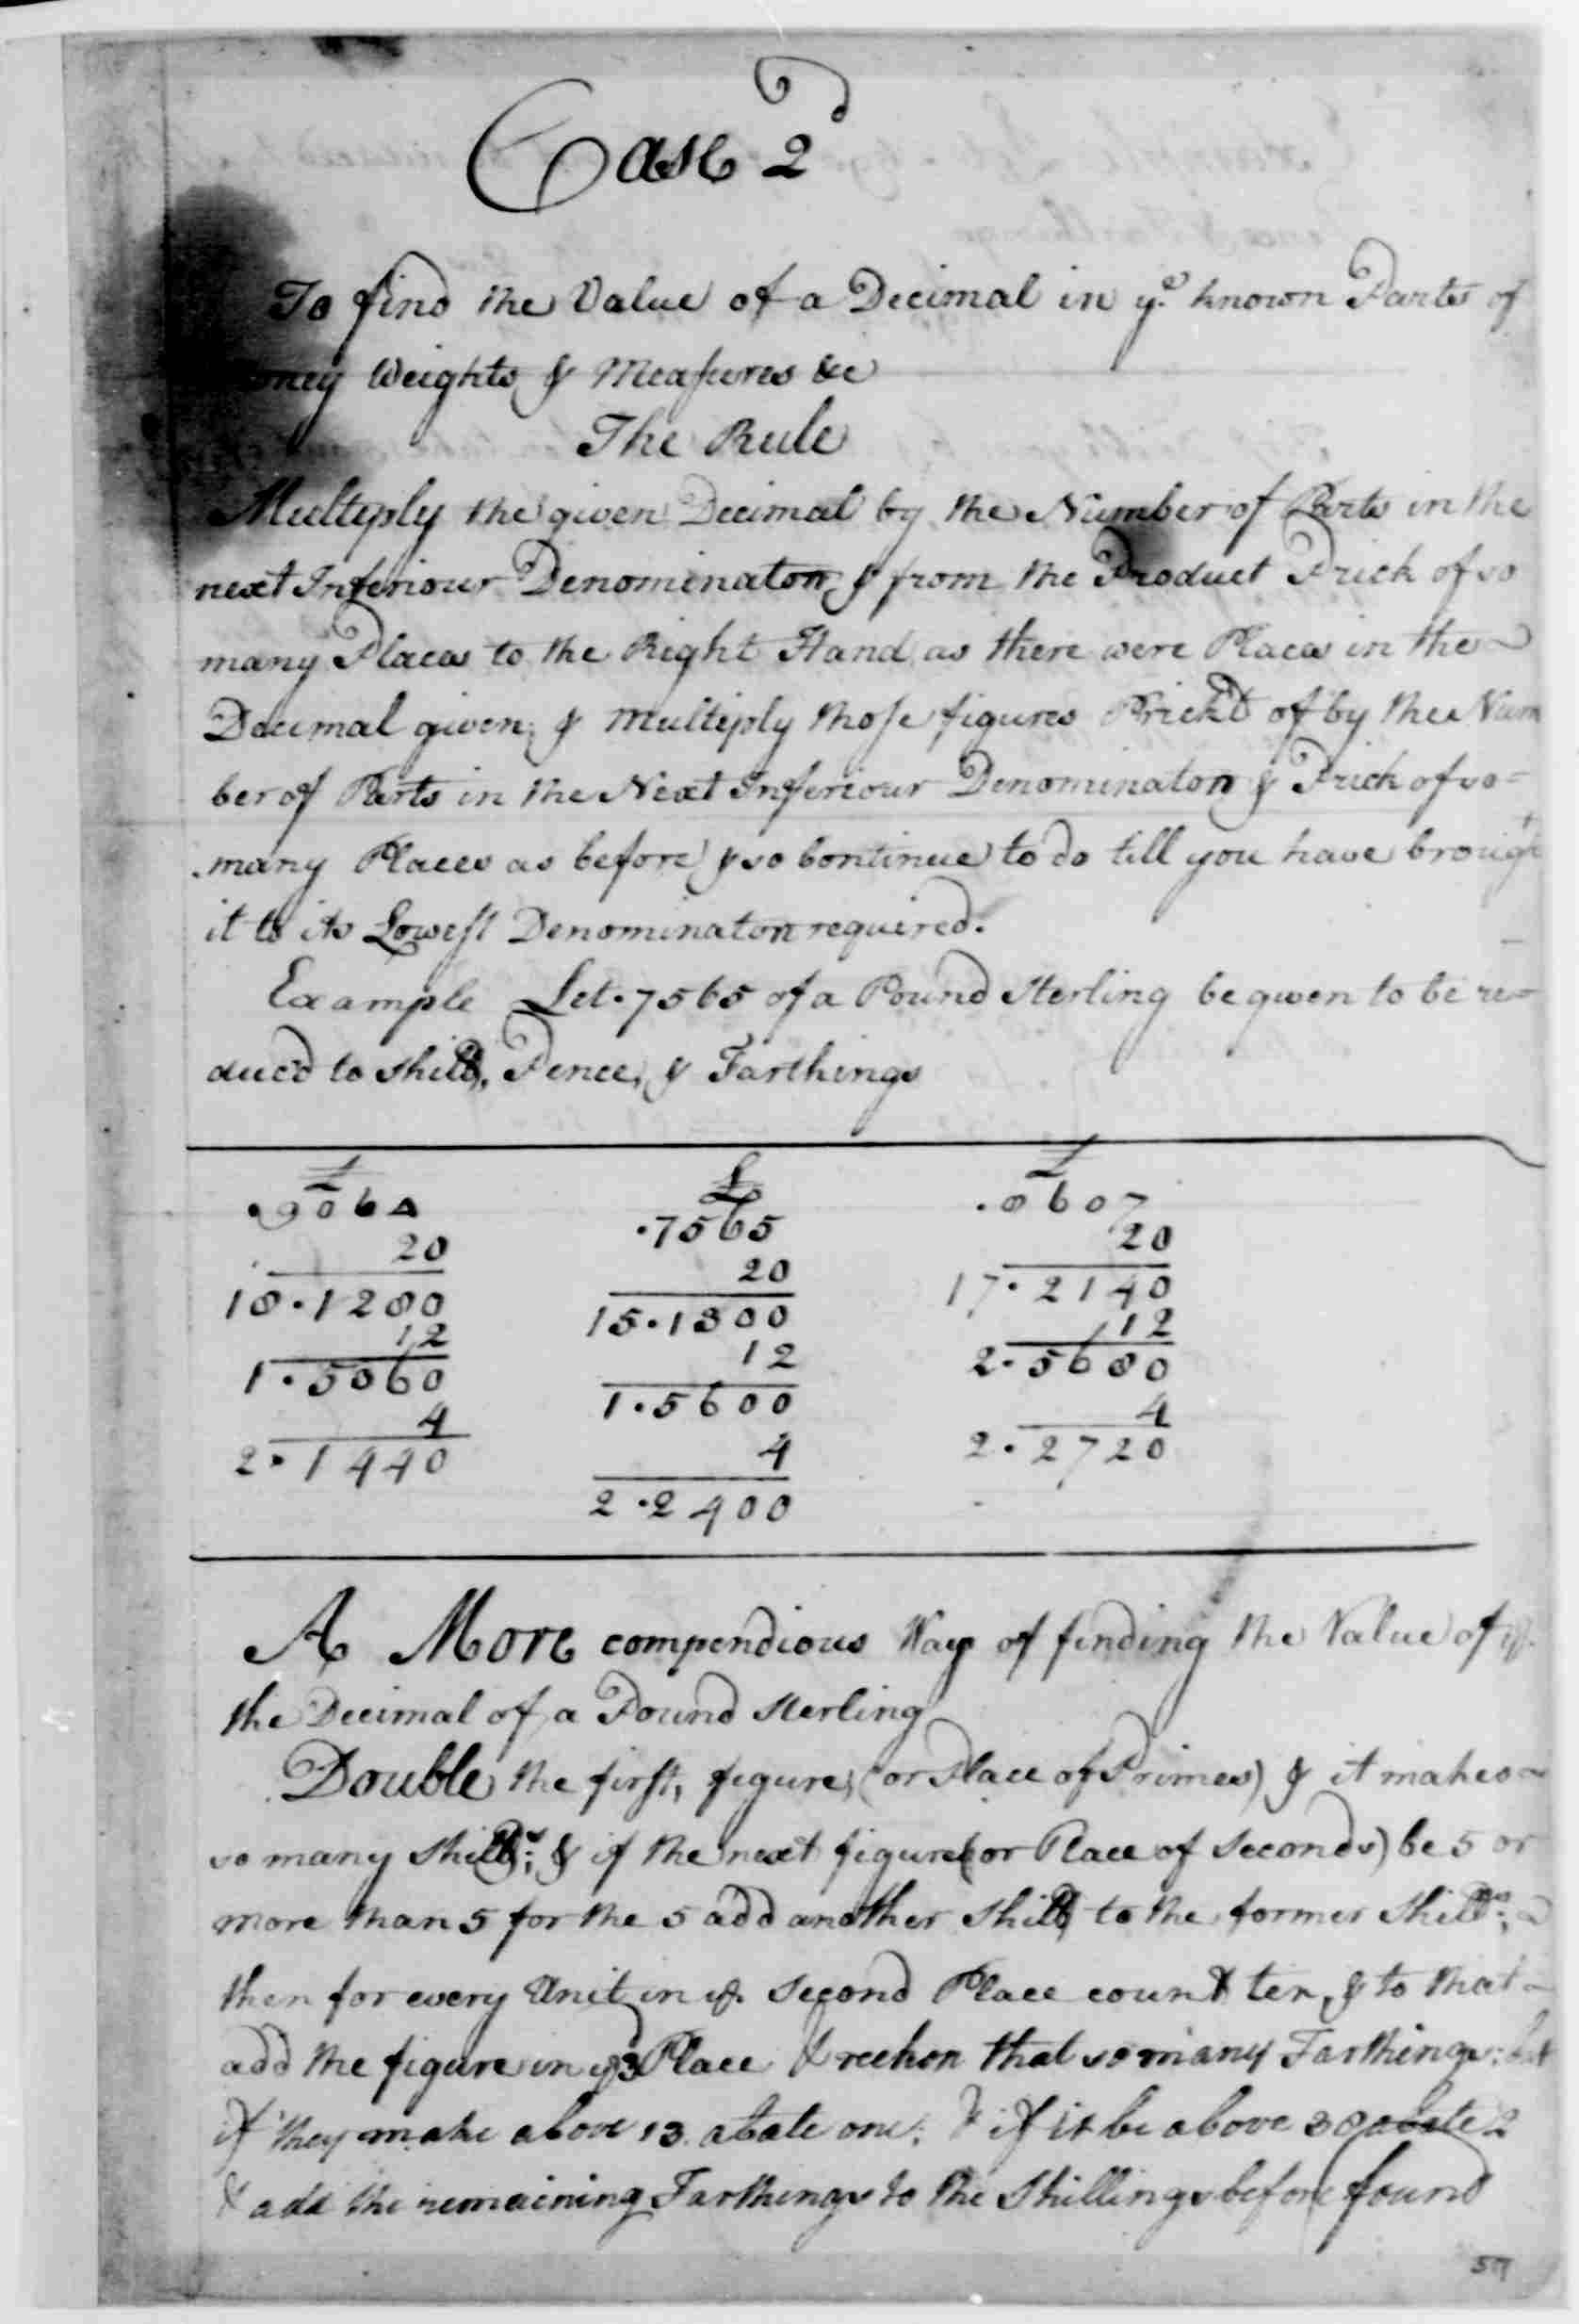 Case 2d
To find the Value of a Decimal in ye known Parts of
Weights & Measures &c
The Rule
Multeply the given Decimal by the Number of Parts in the
next Inferiour Denominaton & from the Product Prick of so
many Places to the Right Hand as there were Places in the
Decimal given; & multiply those figures Prick'd of by the Num
ber of Parts in the Next Inferiour Denominaton & Prick of so=
many Places as before & so continue to do till you have brought
it to its Lowest Denominaton required.
Example Let .7565 of a Pound Sterling be given to be re=
duc'd to Shills, Pence, & Farthings
£
.9064
20
18.1280
12
1.5360
4
2.1440
£
.7565
20
15.1300
12
1.5600
4
2.2400
£
.8607
20
17.2140
12
2.5680
4
2.2720
A More compendious Way of finding the Value of ye
the Decimal of a Pound Sterling
Double the first, figure, (or Place of Primes) & it makes
so many Shills; & if the next figure (or Place of Seconds) be 5 or
more than 5 for the 5 add another Shill to the former Shills;
then for every Unit in ye Second Place count ten, & to that
add the figure in ye 3 Place & reckon that so many Farthings; but
if they make above 13 abate one; & if it be above 38 abate 2
& add the remaining Farthings to the Shillings before found